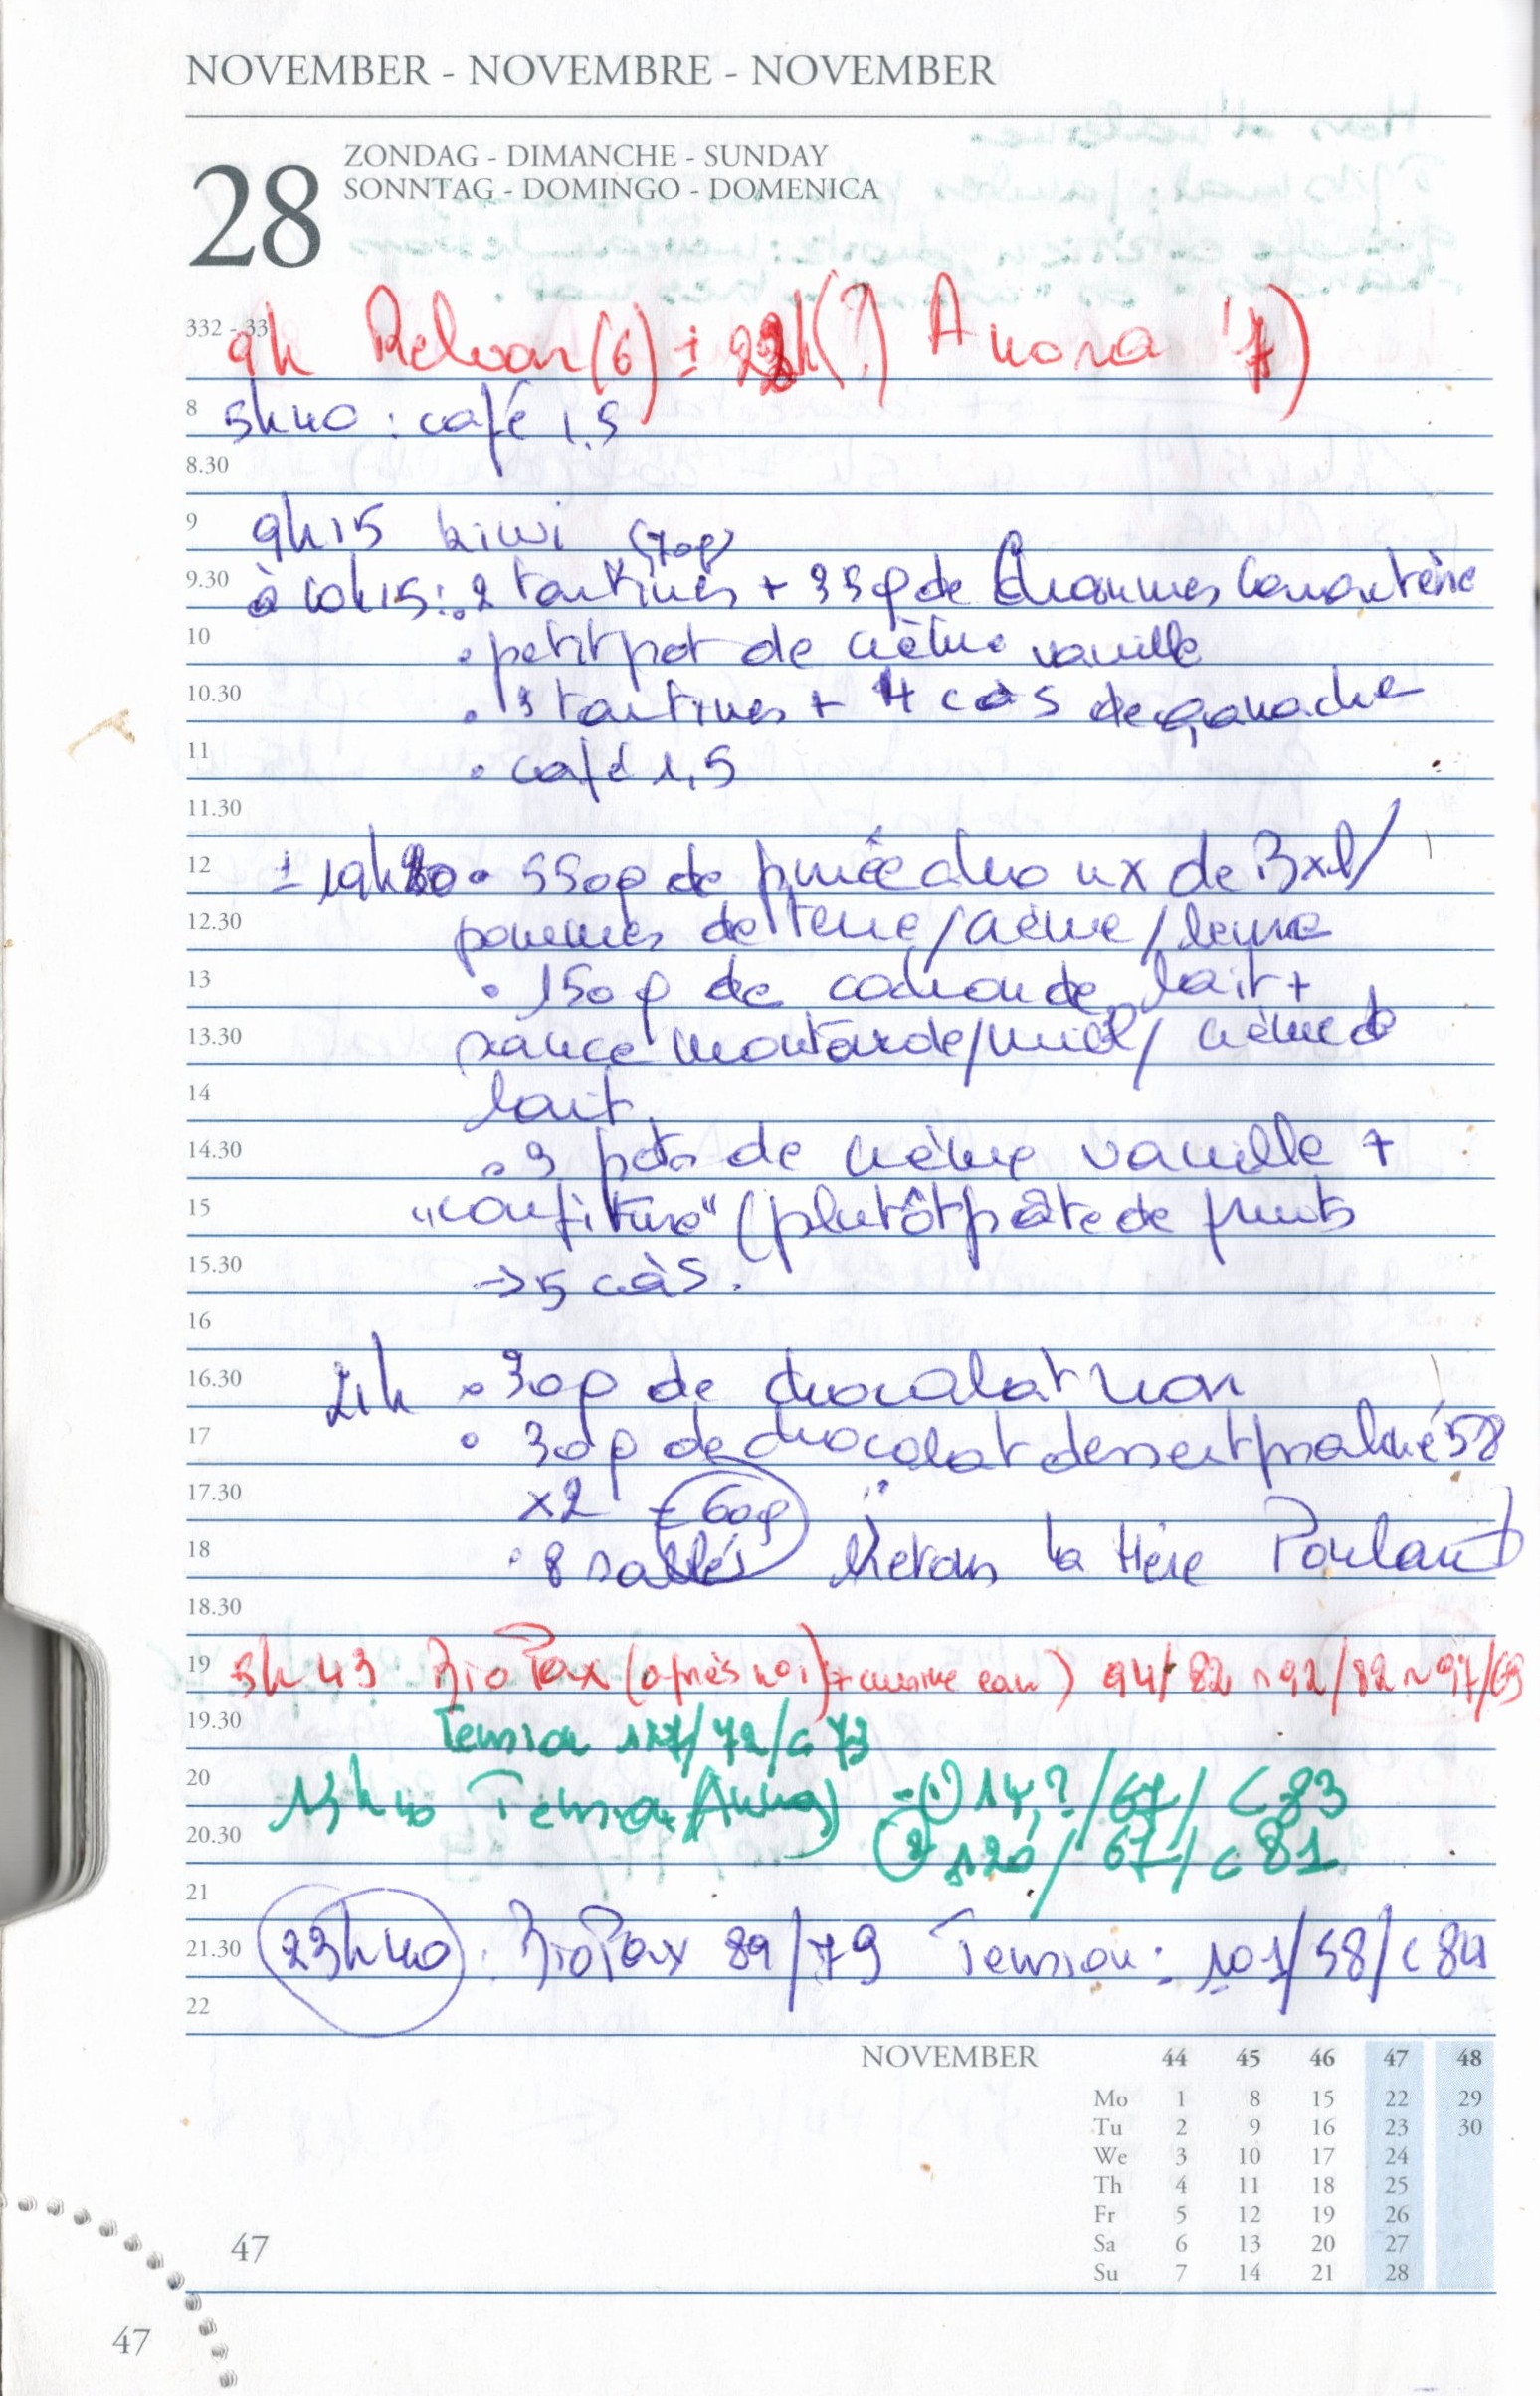 NOVEMBER - NOVEMBRE - NOVEMBER
28
ZONDAG - DIMANCHE - SUNDAY
SONNTAG - DOMINGO - DOMENICA
332 - 33
9h Relvar (6) ± 22h (?) Anora (7)
8 5h40 : café 1,5
8.30
9 9h15 kiwi (70g)
9.30 à 10h15 : . 2 tartines + 35g de
10 . petit pot de crème vanille
10.30 . 3 tartines + 4 càs de ganache
11 . café 1,5
11.30
12 ± 19h . 550g de purée chou de Bxl/
12.30 pommes de terre/crème/
13 . 150g de cochon de lait +
13.30 sauce moutarde/miel/ crème de
14 lait
14.30 . 3 pots de crème vanille +
15 "confiture" (plutôt pâte de fruits
15.30 → 5 càs.
16
16.30 21h . 30g de chocolat noir
17 . 30g de chocolat dessert praliné 58
17.30 x2 = 60g
18 . 8 sablés la Mère Poulard
18.30
19 5h43 BioPax (après n° 1) + eau) 94/82 92/82 97/69
19.30 Tension 127/72/c 73
20 13h40 Tension (Anna) - (1) 14,?/67/ c 83
20.30 (2) 120/ 67/ c 81
21
21.30 23h40 : BioPax 89/79 Tension : 101/58/c 84
22
NOVEMBER 44 45 46 47 48
Mo 1 8 15 22 29
Tu 2 9 16 23 30
We 3 10 17 24
Th 4 11 18 25
Fr 5 12 19 26
Sa 6 13 20 27
Su 7 14 21 28
47
47